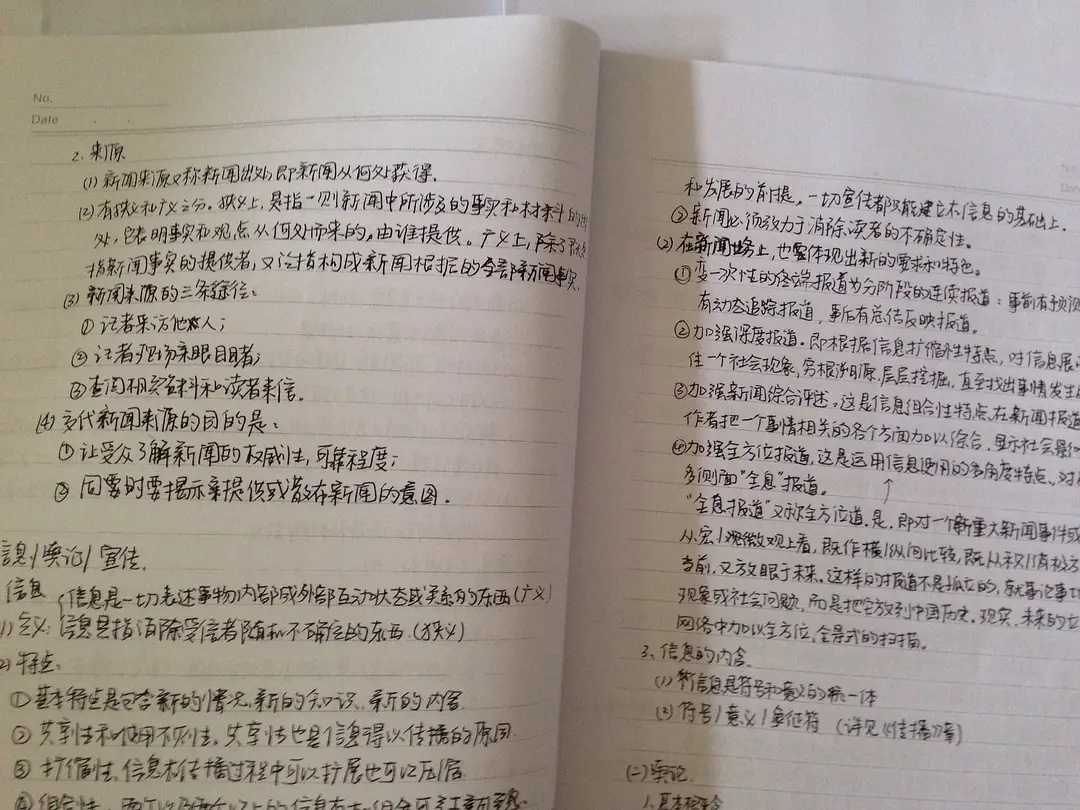 No.
Date
2、来源
(1) 新闻来源又称新闻出处,即新闻从何处获得.
(2) 有狭义和广义之分。狭义上,是指一则新闻中所涉及的事实和材料的出
处,它表明事实和观点从何处而来的,由谁提供。广义上,除了
指新闻事实的提供者,又泛指构成新闻根据的全部新闻事实.
(3) 新闻来源的三条途径:
① 记者采访他人;
② 记者现场亲眼目睹;
③ 查阅相实资料和读者来信.
(4) 交代新闻来源的目的是:
① 让受众了解新闻的权威性,可靠程度;
② 同要时要揭示亲提供或者放布新闻的意图.
信息/舆论/宣传.
信息 信息是一切表述事物内部或外部互动状态或关系的东西(广义)
1)定义: 信息是指消除受信者随机不确定的东西.(狭义)
2)特点:
① 基本特点是包含新的情况、新的知识、新的内容.
② 共享性和使用不灭性。共享性也是信息得以传播的原因.
③ 扩缩性。信息在传播过程中可以扩展也可以压缩.
④ 组合性。两个以及两个以上的信息
和发展的前提。一切宣传都只能建立在信息的基础上.
② 新闻必须致力于消除读者的不确定性。
(2) 在新闻业务上,也要体现出新的要求和特色。
① 变一次性的终端报道为分阶段的连续报道:事前有预测
有动态追踪报道,事后有总结反映报道。
② 加强深度报道. 即根据信息扩缩性特点,对信息展
住一个社会现象,穷根溯源,层层挖掘,直至找出事情发生
③ 加强新闻综合评述。这是信息组合性特点,在新闻报道
作者把一个事情相关的各个方面加以综合,显示社会是
④ 加强全方位报道。这是运用信息使用的多角度特点、对
多侧面"全息"报道。
"全息报道"又称全方位道,是,即对一个新重大新闻事件或
从宏/观微观上看,既作横/纵向比较,既从积/消极方
当前,又放眼于未来。这样的报道不是孤立的,就事论事
现象或社会问题,而是把它放到中国历史、现实、未来的立
网络中加以全方位、全景式的扫描。
3、信息的内容.
(1) 新信息是符号和意义的统一体
(2) 符号/意义/象征符 (详见《传播》章)
(二)舆论.
1.基本概念